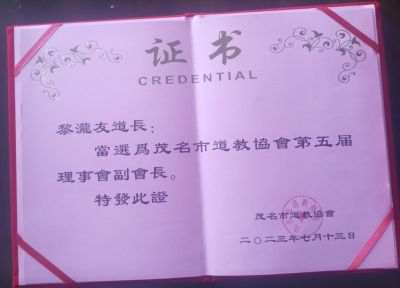 证书
CREDENTIAL
黎瀧友道長：
當選爲茂名市道教協會第五届
理事會副會長。
特發此證
茂名市道教協會
二〇二三年七月十三日